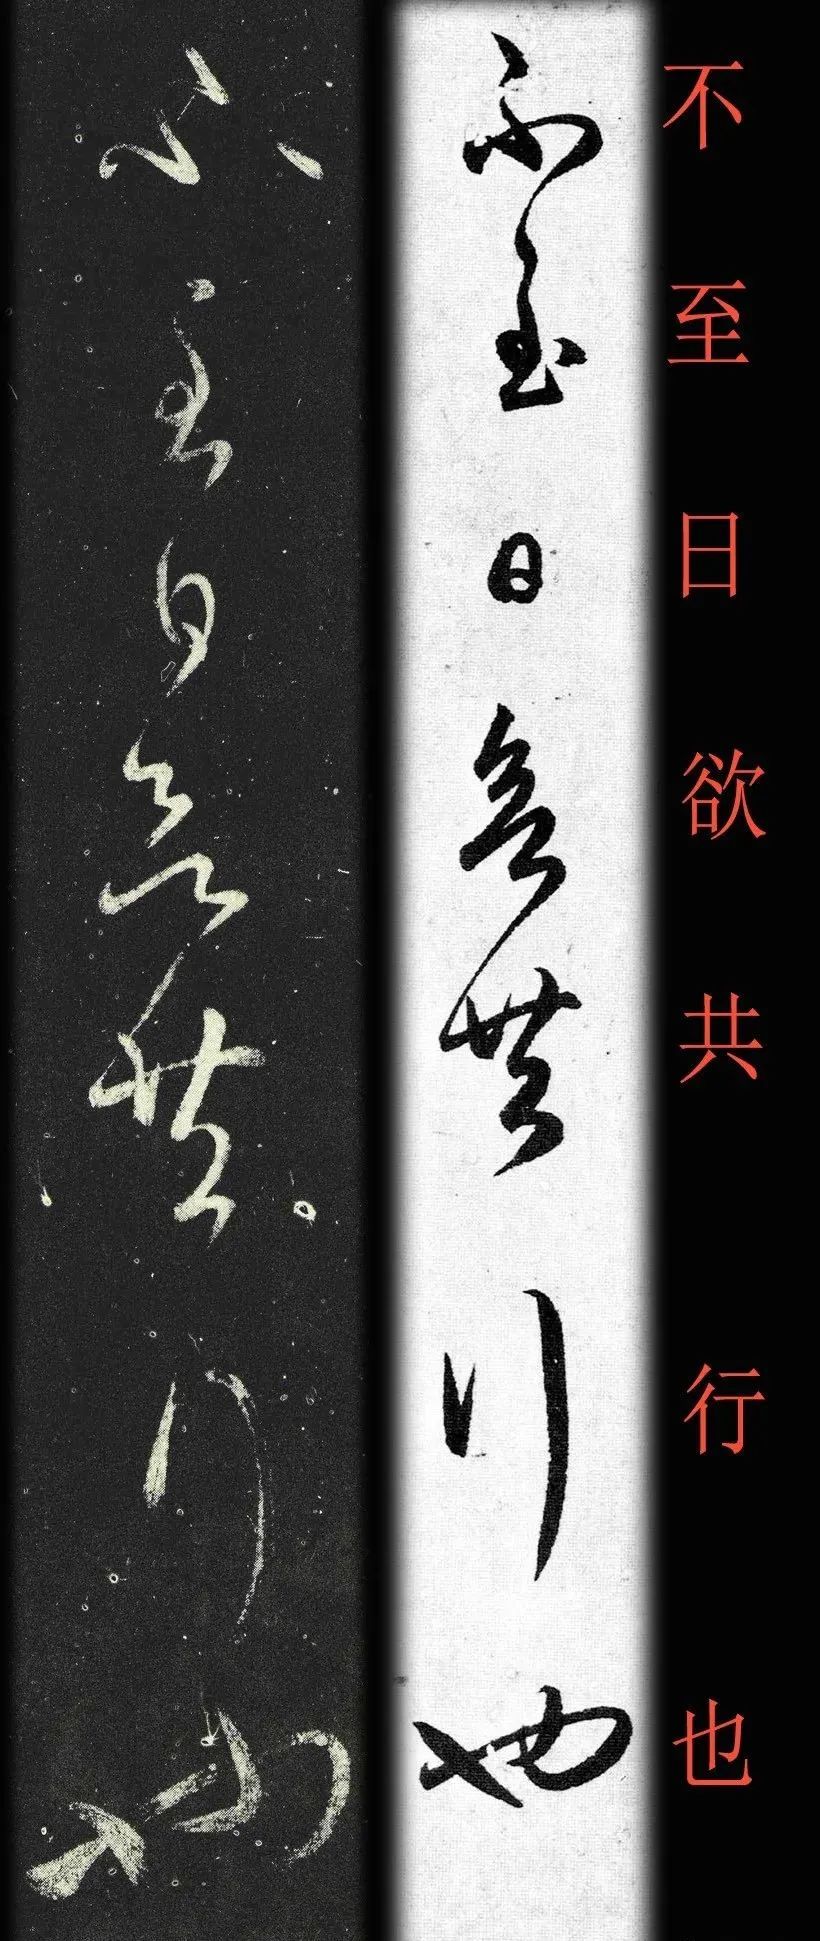 不至日欲共行也
不至日欲共行也
不至日欲共行也